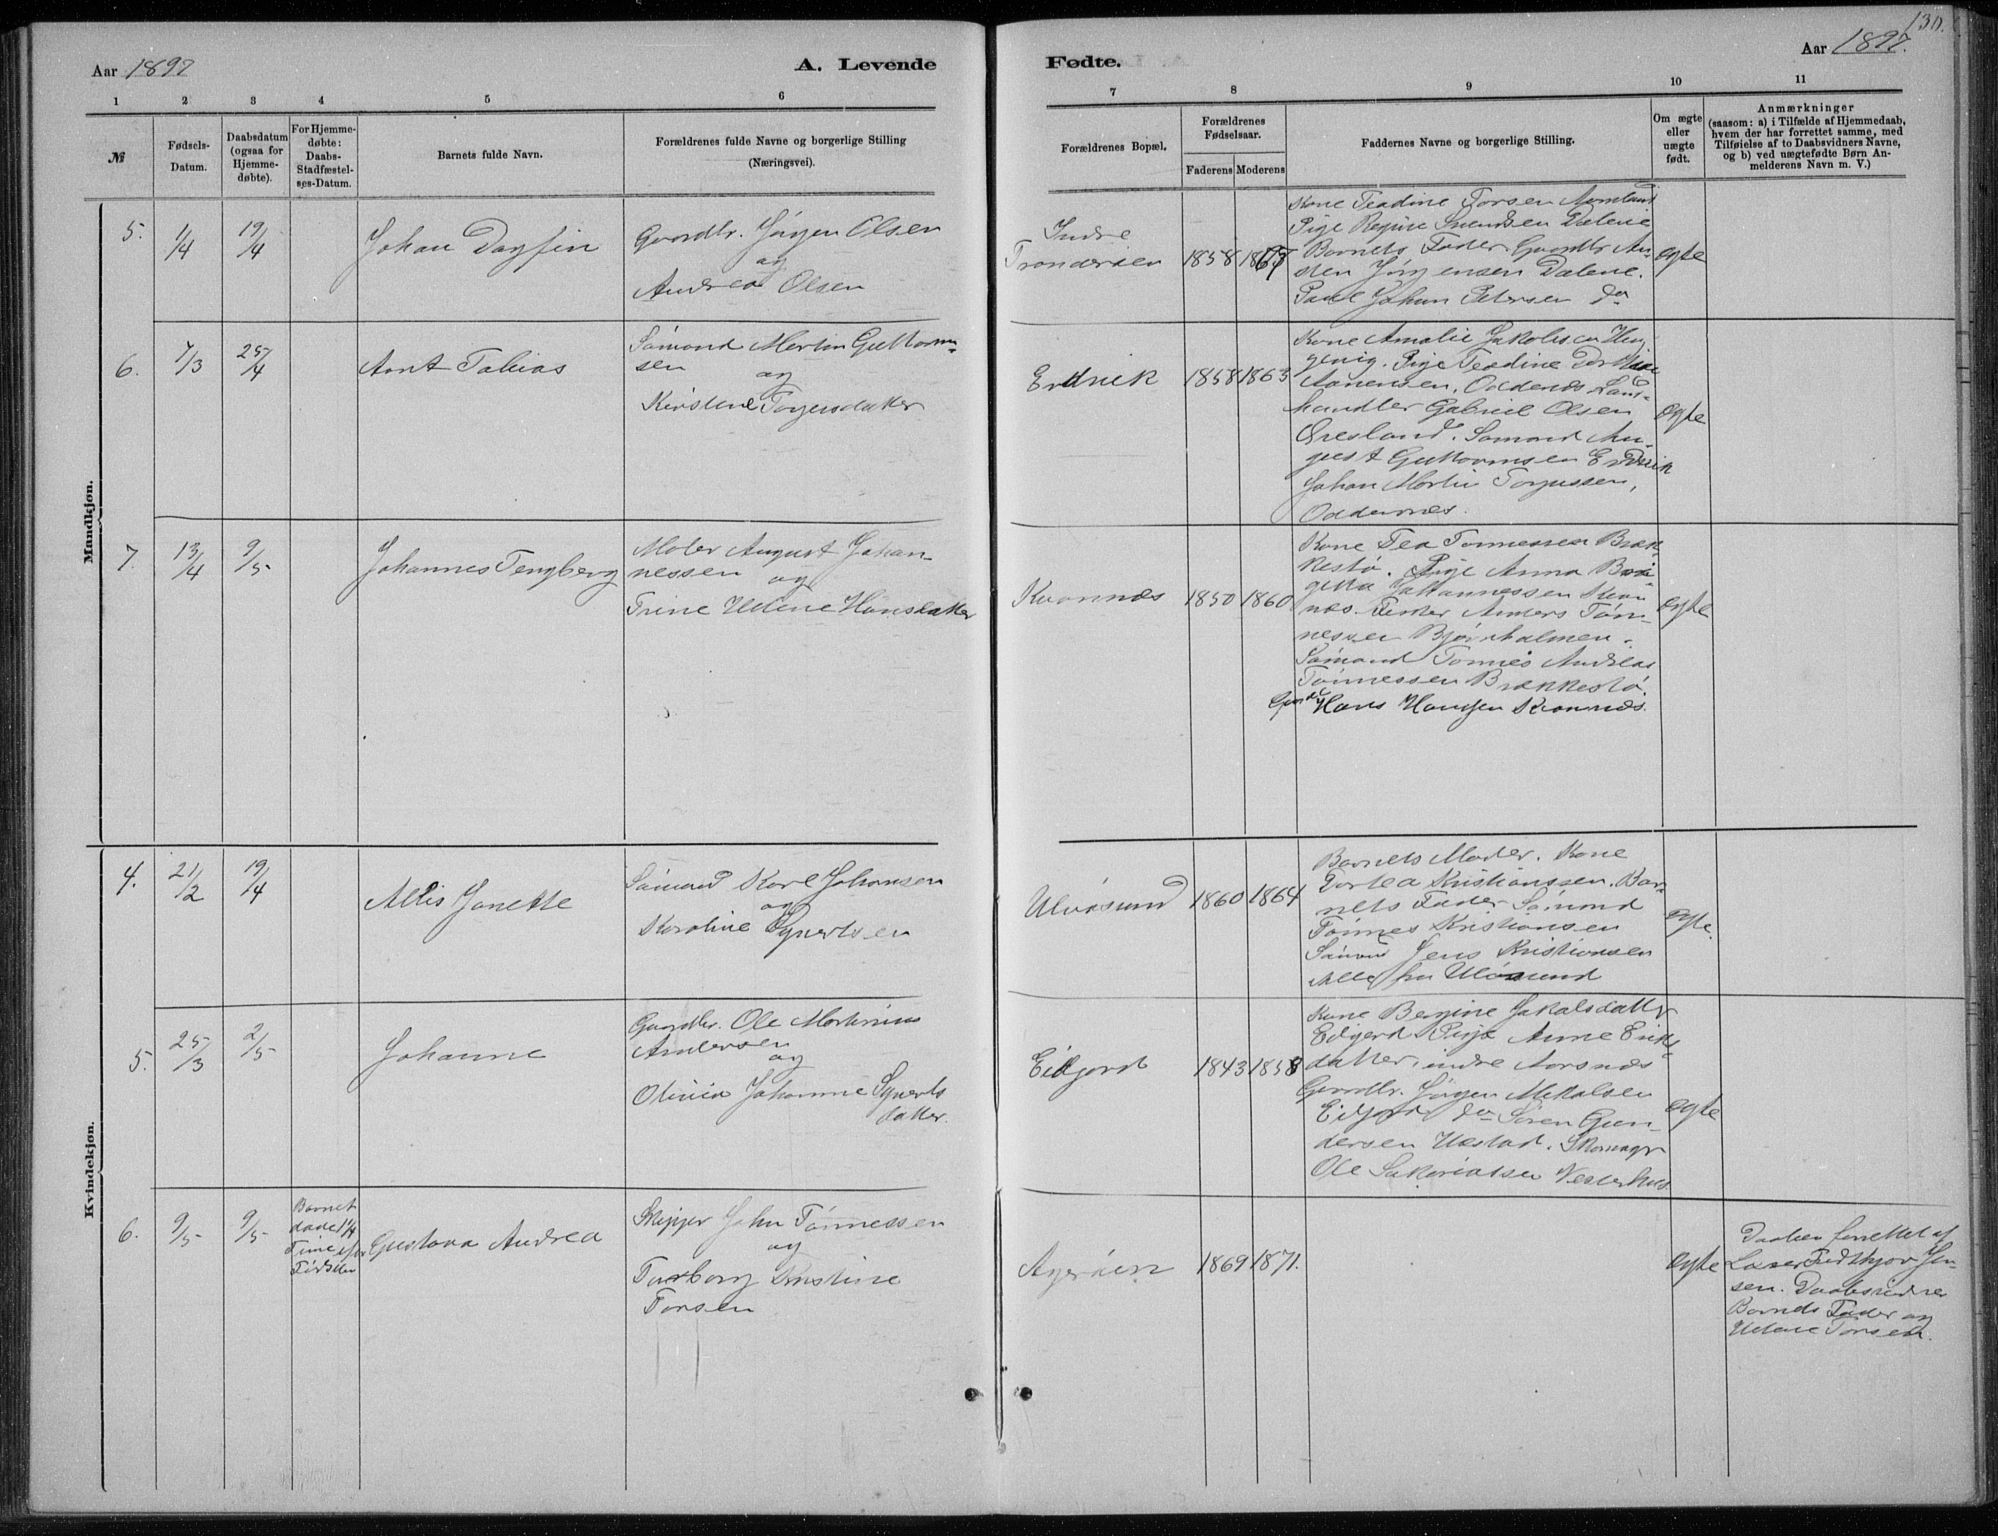 130.
Aar 1897
A. Levende
Fødte.
Aar 1897.
1 2 3 4 5 6 7 8 9 10 11
№
Fødsels-
Datum.
Daabsdatum
(ogsaa for
Hjemme-
døbte).
For Hjemme-
døbte:
Daabs-
Stadfæstel-
ses-Datum.
Barnets fulde Navn.
Forældrenes fulde Navne og borgerlige Stilling
(Næringsvei).
Forældrenes Bopæl.
Forældrenes
Fødselsaar.
Faderens Moderens
Faddernes Navne og borgerlige Stilling.
Om ægte
eller
uægte
født.
Anmærkninger
(saasom: a) i Tilfælde af Hjemmedaab,
hvem der har forrettet samme, med
Tilføielse af to Daabsvidners Navne,
og b) ved uægtefødte Børn An-
melderens Navn m. V.)
Mandkjøn.
5. 1/4 19/4 Johan Dagfin
Gaardbr. Jørgen Olsen
og
Andrea Olsen
Indre
1858
Kone Teadine Torsen Aamland
Pige Regine Svendsen Dalene
Barnets Fader. Gaardbr. Au-
sten Jørgensen Dalene.
Paul Johan Petersen do
ægte
6. 7/3 25/4 Arnt Tobias
Sømand Martin Guttorm-
sen
og
Kirstine Torjersdatter
Erdvik 1858 1863
Kone Amalie Jakobsen
Pige Teadine
Aanensen, Oddernes Lan-
handler Gabriel Olsen
Sømand Au-
gust Guttormsen Erdvik
Johan Martin Torjussen,
Oddernes.
ægte
7. 13/4 9/5 Johannes Tengberg
Maler August Johan-
nessen og
Trine Helene Hansdatter
Kvannes 1850 1860
Kone Tea Tønnessen Bræk-
kestø. Pige Anna
Johannessen Kvan-
næs. Anders Tøn-
nessen Bjørnholmen.
Sømand Tønnes Andreas
Tønnessen Brækkestø.
Hans Hansen Kvannæs.
ægte
Kvindekjøn.
4. 21/2 19/4 Allis Janette
Sømand Karl Johansen
og
Karoline Syvertsen
Ulvøsund 1860 1864
Barnets Moder. Kone
Dortea Kristianssen. Bar-
nets Fader Sømand
Tønnes Kristiansen
Sømand Jens Kristiansen
Alle fra Ulvøsund
ægte.
5. 25/3 2/5 Johanne
Gaardbr. Ole Martinius
Andersen
og
Olivia Johanne Syverts
datter.
Eidjord 1843 1858
Kone Bergine Jakobsdatter
Eidjord Pige Anne Eriks-
datter, indre Aarsnæs
Gaardbr. Jørgen Mikalsen
Eidjord do Søren Gun-
dersen Uestad. Skomager
Ole Sakariasen Vesterhus.
ægte
6. 9/5 9/5
Barnet
døde 1/4
Time efter
Fødselen
Gustava Andrea
Skipper John Tønnessen
og
Torborg Kristine
Torsen
Agerøen 1869 1871.
ægte
Daaben forrettet af
Lærer Fridthjov Jen-
sen. Daabsvidner
Barnets Fader og
Helene Torsen.